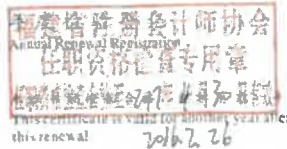 福建省注册会计师协会
Annual Renewal Registration
任职资格检查专用章
This certificate is valid for another year after
this renewal
2016.2.26